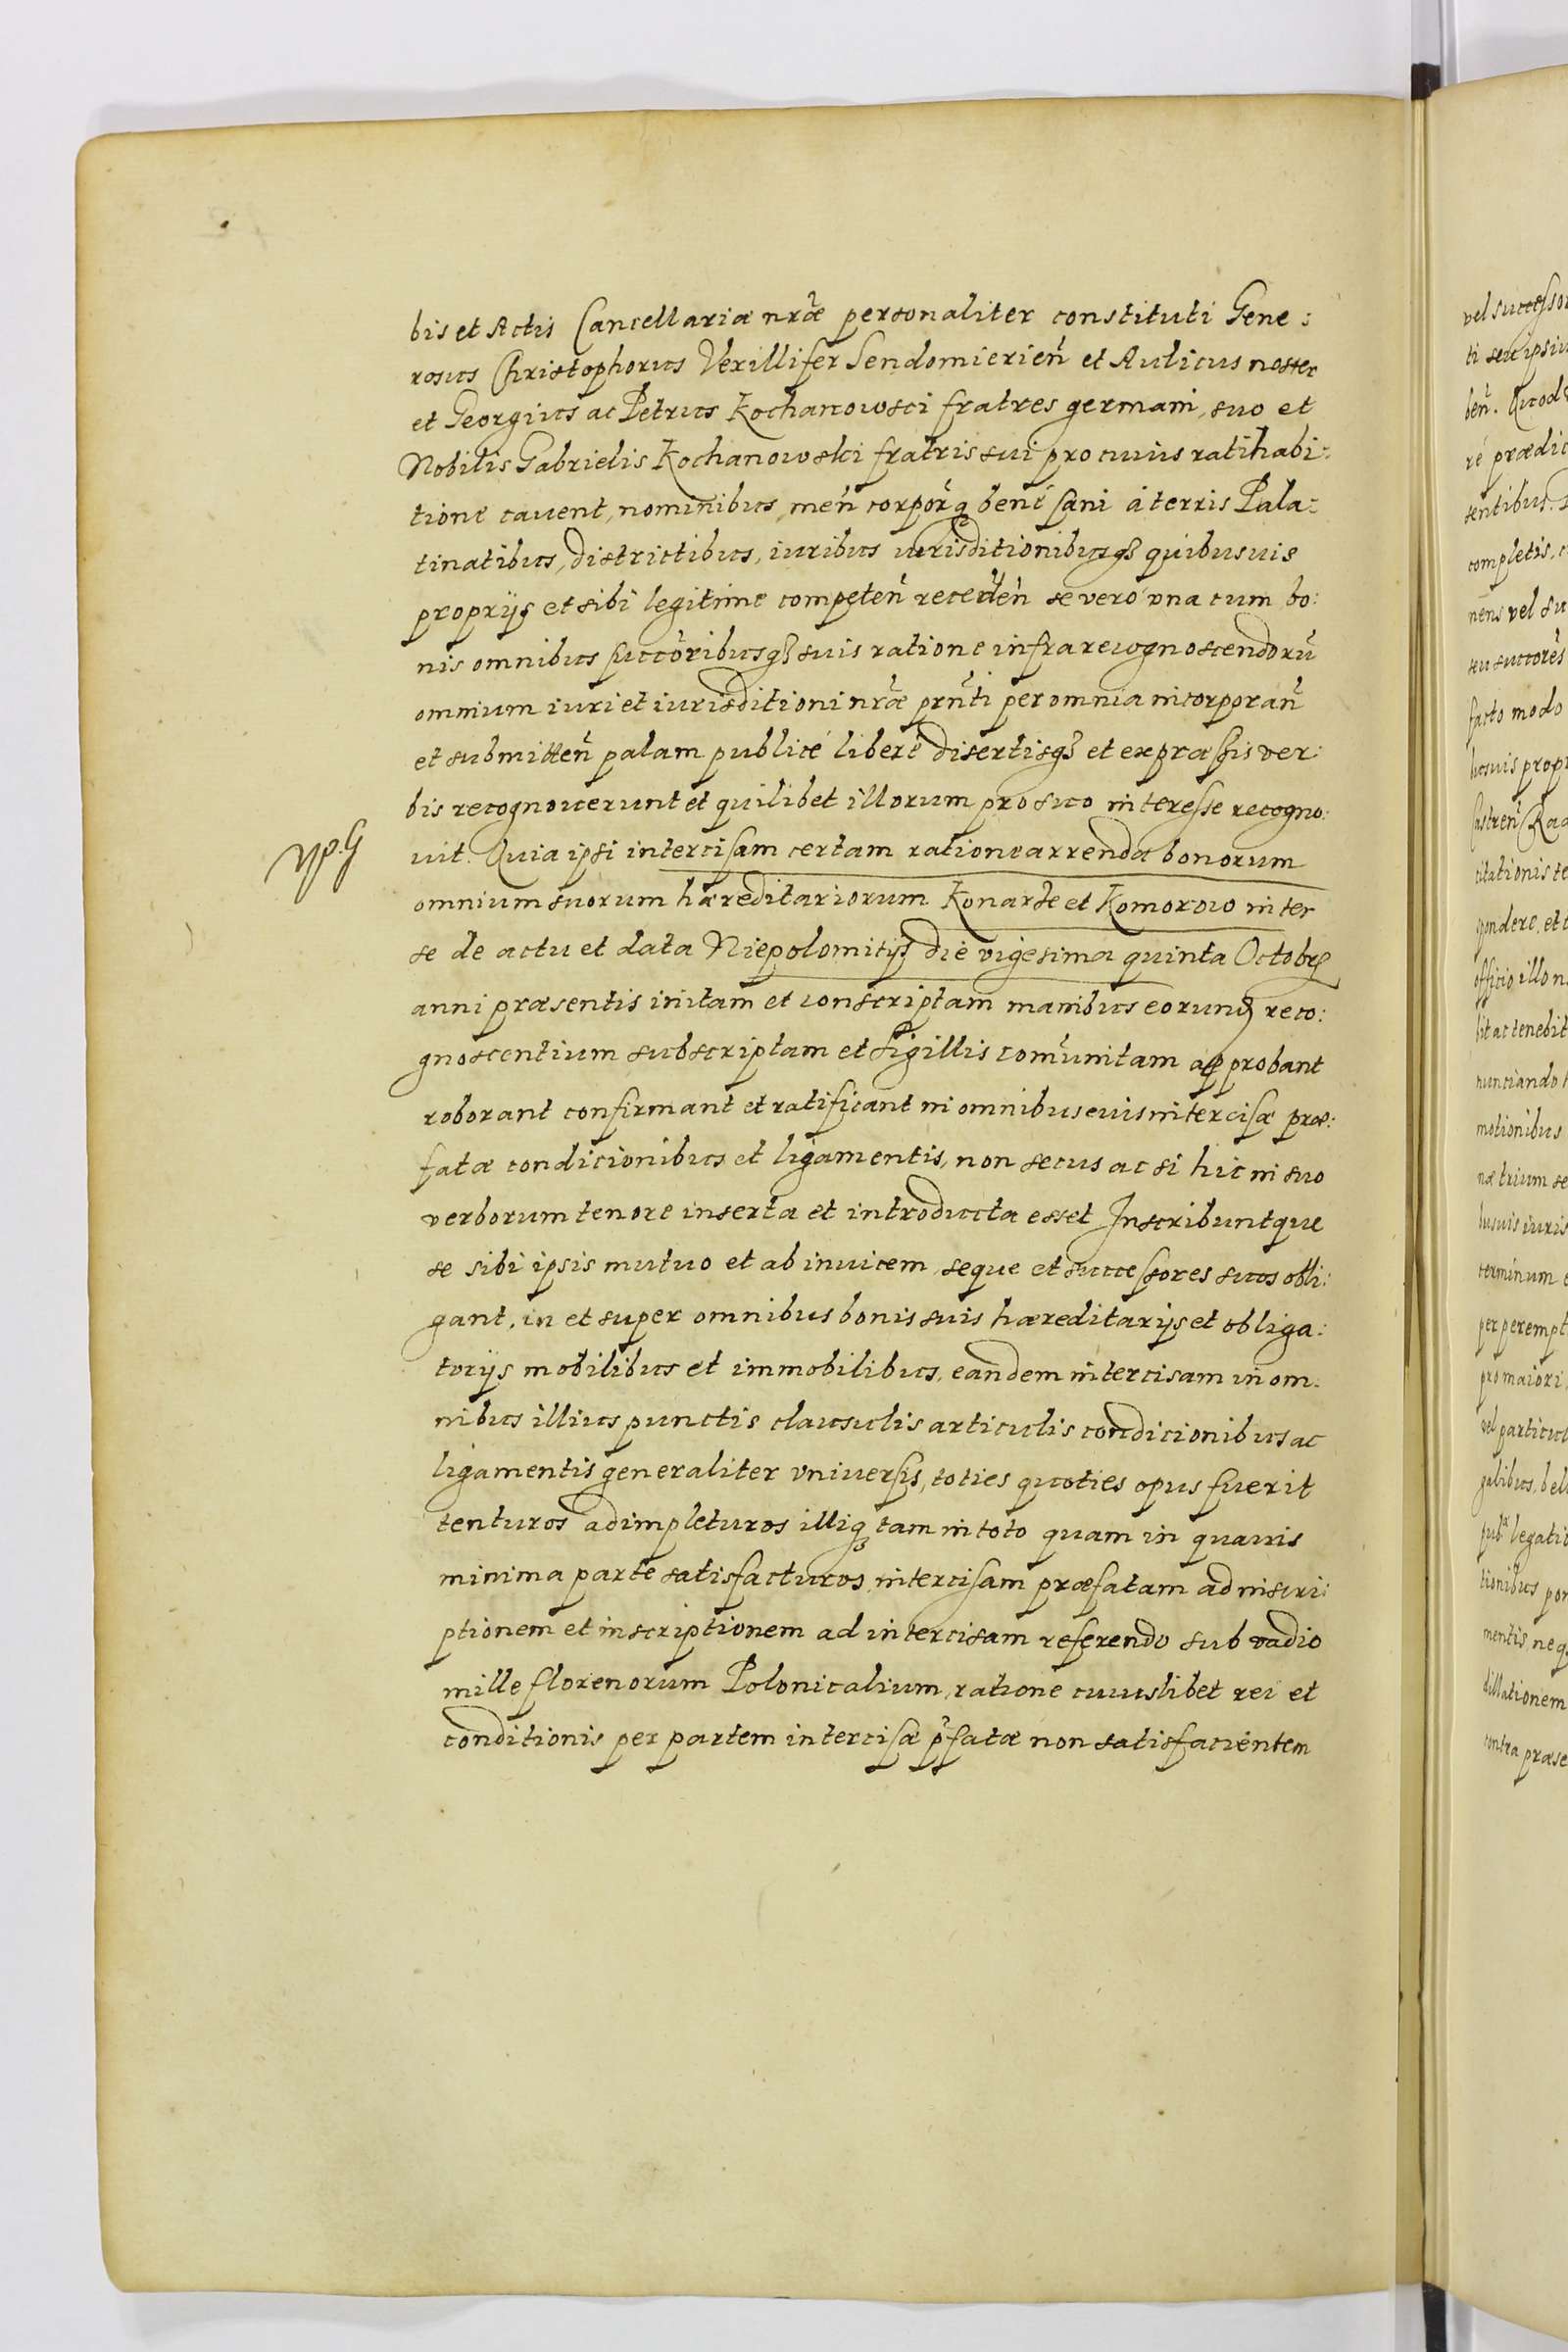 bis et Actis Cancellariæ nr̃æ personaliter constituti Gene:
rosus Christophorus Vexillifer Sendomirien̄ et Aulicus noster
et Georgius ac Petrus Kochanowsci fratres germani, suo et
Nobilis Gabrielis Kochanowski fratris sui pro cuius ratihabi:
tione cauent, nominibus, men̄ corporq̃ bene sani à terris Pala:
tinatibus, districtibus, iuribus iurisditionibusq̃ quibusuis
proprijs et sibi legitime competen̄ receden̄ se vero vna cum bo:
nis omnibus succōribusq̃ suis ratione infra recognoscendorū
omnium iuri et iurisditioni nr̃æ prn̄ti per omnia incorporan̄
et submitten̄ palam publicé liberé disertisq̃ et expræssis ver:
bis recognouerunt et quilibet illorum pro suo interesse recogno:
uit. Quia ipsi intercisam certam ratione arrendæ bonorum
omnium suorum hæreditariorum Konarse et Komorow inter
se de actu et data Niepolomicijs die vigesima quinta Octobr̃
anni præsentis initam et conscriptam manibus eorund̃ reco:
gnoscentium subscriptam et sigillis com̄unitam approbant
roborant confirmant et ratificant in omnibus euis intercisæ præ:
fatæ condicionibus et ligamentis, non secus ac si hic in suo
verborum tenore inserta et introducta esset Inscribuntque
se sibi ipsis mutuo et ab inuicem seque et successores suos obli:
gant, in et super omnibus bonis suis hæreditarijs et obliga:
torijs mobilibus et immobilibus, eandem intercisam in om:
nibus illius punctis clausulis articulis condicionibus ac
ligamentis generaliter vniuersis, toties quoties opus fuerit
tenturos adimpleturos illiq̃ tam in toto quam in quauis
minima parte satisfacturos, intercisam præfatam ad inscri:
ptionem et inscriptionem ad intercisam referendo sub vadio
mille florenorum Polonicalium, ratione cuiuslibet rei et
conditionis per partem intercisæ p̃fatæ non satisfacientem
vel successo
ti seu ipsiu
ben̄. Quod
ré prædic
sentibus.
completis,
nens vel su
seu succorēs
facto modo
busuis propr
Castren̄ Rad
citationis te
pondere, et
officio illo n
bit ac tenebit
nunciando
motionibus
næ trium se
busuis iuris
terminum
per perempt
pro maiori
vel particul
galibus, bel
pub. legatio
tionibus por
mentis, neq
dillationem
contra præse